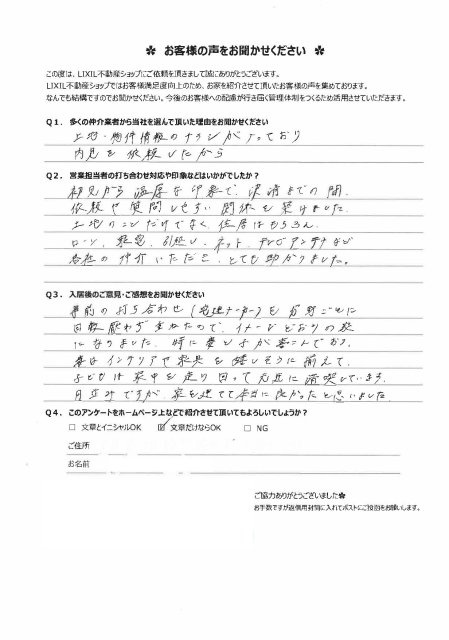 ✽ お客様の声をお聞かせください ✽
この度は、LIXIL不動産ショップにご依頼を頂きまして誠にありがとうございます。
LIXIL不動産ショップではお客様満足度向上のため、お家を紹介させて頂いたお客様の声を集めております。
なんでも結構ですのでお聞かせください。今後のお客様への配慮が行き届く管理体制をつくるため活用させていただきます。
Q1．多くの仲介業者から当社を選んで頂いた理由をお聞かせください
土地・物件情報のチラシが入っており
内見を依頼したから
Q2．営業担当者の打ち合わせ対応や印象などはいかがでしたか？
初見から温厚な印象で、決済までの間、
依頼や質問しやすい関係を築けました。
土地のことだけでなく、住居はもちろん、
ローン、融資、引越し、ネット、テレビアンテナなど
各社の仲介いただき、とても助かりました。
Q3．入居後のご意見・ご感想をお聞かせください
事前の打ち合わせ（
回数重ねたので、イメージどおりの家
になりました。特に妻と
妻はインテリアや家具を嬉しそうに揃えて、
子どもは家中を走り回って元気に満喫しています。
月並みですが、家を建てて本当に良かったと思いました
Q4．このアンケートをホームページ上などで紹介させて頂いてもよろしいでしょうか？
□ 文章とイニシャルOK ☑ 文章だけならOK □ NG
ご住所
お名前
ご協力ありがとうございました✽
お手数ですが返信用封筒に入れてポストにご投函をお願いします。